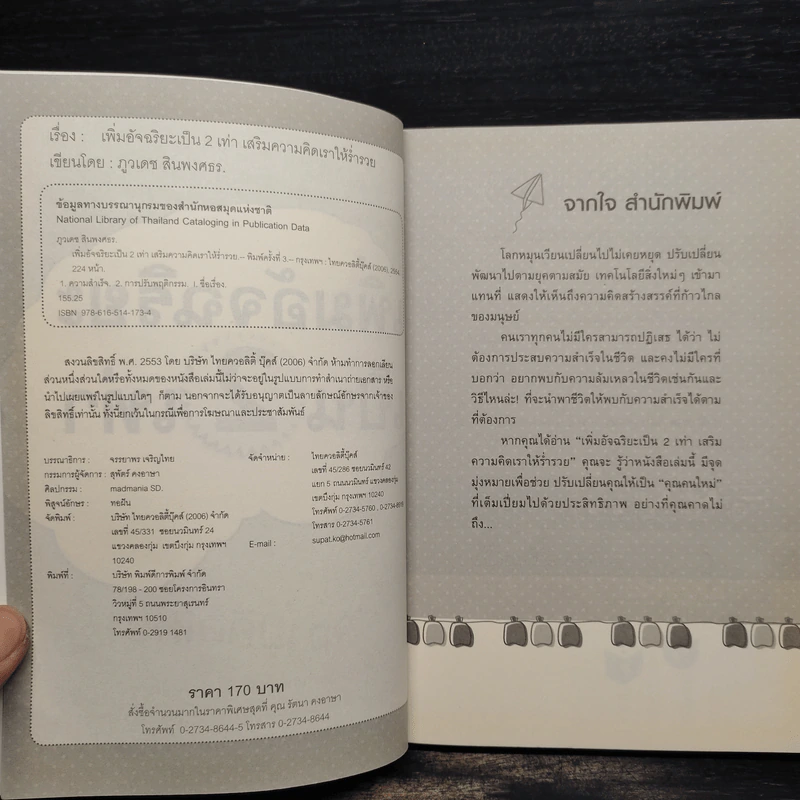 เรื่อง : เพิ่มอัจฉริยะเป็น 2 เท่า เสริมความคิดเราให้ร่ำรวย
เขียนโดย : ภูวเดช สินพงศธร.
ข้อมูลทางบรรณานุกรมของสำนักหอสมุดแห่งชาติ
National Library of Thailand Cataloging in Publication Data
ภูวเดช สินพงศธร.
เพิ่มอัจฉริยะเป็น 2 เท่า เสริมความคิดเราให้ร่ำรวย.-- พิมพ์ครั้งที่ 3.-- กรุงเทพฯ : ไทยควอลิตี้บุ๊คส์ (2006), 2554.
224 หน้า.
1. ความสำเร็จ. 2. การปรับพฤติกรรม. I. ชื่อเรื่อง.
155.25
ISBN 978-616-514-173-4
สงวนลิขสิทธิ์ พ.ศ. 2553 โดย บริษัท ไทยควอลิตี้ บุ๊คส์ (2006) จำกัด ห้ามทำการลอกเลียน
ส่วนหนึ่งส่วนใดหรือทั้งหมดของหนังสือเล่มนี้ไม่ว่าจะอยู่ในรูปแบบการทำสำเนาถ่ายเอกสาร หรือ
นำไปเผยแพร่ในรูปแบบใดๆ ก็ตาม นอกจากจะได้รับอนุญาตเป็นลายลักษณ์อักษรจากเจ้าของ
ลิขสิทธิ์เท่านั้น ทั้งนี้ยกเว้นในกรณีเพื่อการโฆษณาและประชาสัมพันธ์
บรรณาธิการ : จรรยาพร เจริญไทย
กรรมการผู้จัดการ : สุพัตร์ คงอาษา
ศิลปกรรม : madmania SD.
พิสูจน์อักษร : ทอฝัน
จัดพิมพ์ : บริษัท ไทยควอลิตี้บุ๊คส์ (2006) จำกัด
เลขที่ 45/331 ซอยนวมินทร์ 24
แขวงคลองกุ่ม เขตบึงกุ่ม กรุงเทพฯ
10240
พิมพ์ที่ : บริษัท พิมพ์ดีการพิมพ์ จำกัด
78/198 - 200 ซอยโครงการอินทรา
วิวหมู่ที่ 5 ถนนพระยาสุเรนทร์
กรุงเทพฯ 10510
โทรศัพท์ 0-2919 1481
จัดจำหน่าย : ไทยควอลิตี้บุ๊คส์
เลขที่ 45/286 ซอยนวมินทร์ 42
แยก 5 ถนนนวมินทร์ แขวงคลองกุ่ม
เขตบึงกุ่ม กรุงเทพฯ 10240
โทรศัพท์ 0-2734-5760 , 0-2734-8644
โทรสาร 0-2734-5761
E-mail : supat.ko@hotmail.com
ราคา 170 บาท
สั่งซื้อจำนวนมากในราคาพิเศษสุดที่ คุณ รัตนา คงอาษา
โทรศัพท์ 0-2734-8644-5 โทรสาร 0-2734-8644
จากใจ สำนักพิมพ์
โลกหมุนเวียนเปลี่ยนไปไม่เคยหยุด ปรับเปลี่ยน
พัฒนาไปตามยุคตามสมัย เทคโนโลยีสิ่งใหม่ๆ เข้ามา
แทนที่ แสดงให้เห็นถึงความคิดสร้างสรรค์ที่ก้าวไกล
ของมนุษย์
คนเราทุกคนไม่มีใครสามารถปฏิเสธ ได้ว่า ไม่
ต้องการประสบความสำเร็จในชีวิต และคงไม่มีใครที่
บอกว่า อยากพบกับความล้มเหลวในชีวิตเช่นกันและ
วิธีไหนล่ะ! ที่จะนำพาชีวิตให้พบกับความสำเร็จได้ตาม
ที่ต้องการ
หากคุณได้อ่าน “เพิ่มอัจฉริยะเป็น 2 เท่า เสริม
ความคิดเราให้ร่ำรวย” คุณจะ รู้ว่าหนังสือเล่มนี้ มีจุด
มุ่งหมายเพื่อช่วย ปรับเปลี่ยนคุณให้เป็น “คุณคนใหม่”
ที่เต็มเปี่ยมไปด้วยประสิทธิภาพ อย่างที่คุณคาดไม่
ถึง...